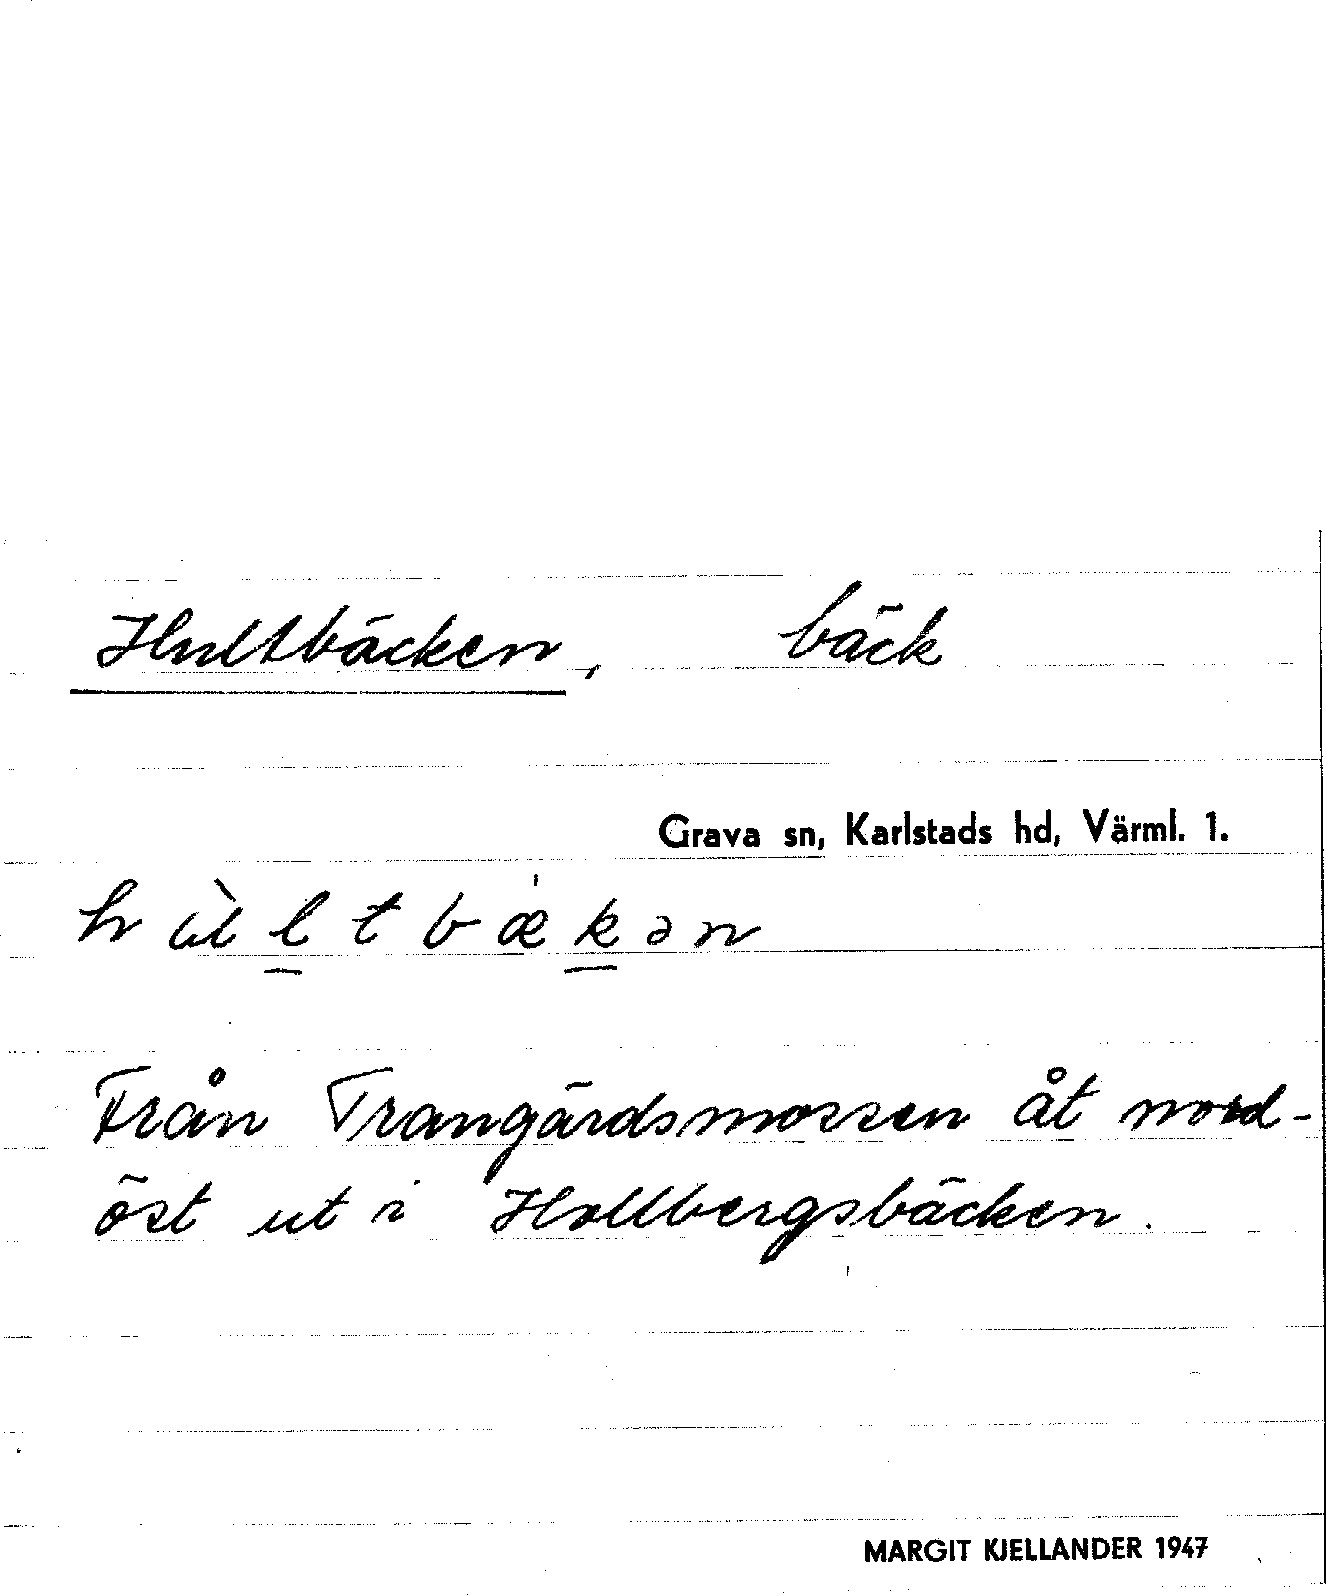 Hultbäcken, bäck
Grava sn, Karlstads hd, Värml. 1.
hùltbækən
Från Trangärdsmossen åt nord-
öst ut i Hollbergsbäcken.
MARGIT KJELLANDER 1947